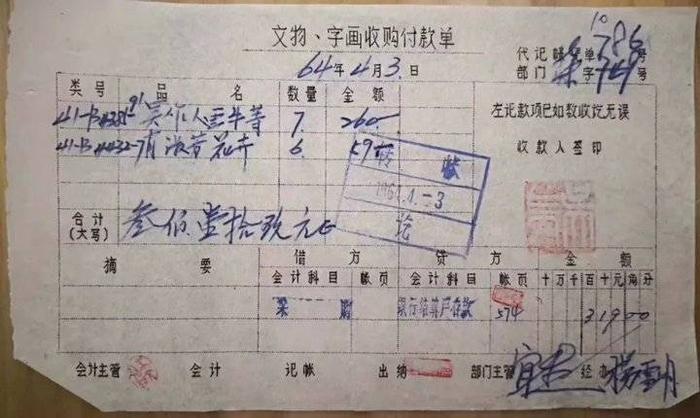 文物、字画收购付款单
64年4月3日
代记账凭单10786号
部门 字 号
类号 品名 数量 金额
41-B4381-91 吴作人 牛等 7. 260
41-B4432-7 花卉 6. 59
左记款项已如数收讫无误
收款人签印
转账
1964.4.-3
讫
合计(大写) 叁佰壹拾玖元正
摘要 借方 贷方 金额
会计科目 帐页 会计科目 帐页 十万千百十元角分
采购 银行结算户存款 574 31900
会计主管 会计 记帐 出纳 部门主管 经办